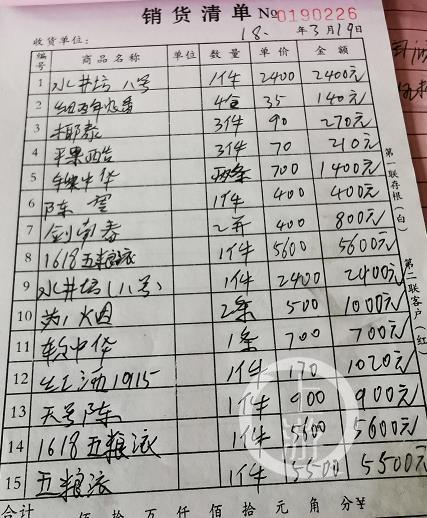 销货清单 №0190226
收货单位: 18. 年3月19日
编号 商品名称 单位 数量 单价 金额
1 水井坊 八号 1件 2400 2400元
2 4合 35 140元
3 椰泰 3件 90 270元
4 苹果醋 3件 70 210元
5 中华 两条 700 1400元
6 陈 1件 400 400元
7 剑南春 2件 400 800元
8 1618五粮液 1件 5600 5600元
9 水井坊(八号) 1件 2400 2400元
10 2条 500 1000元
11 软中华 1条 700 700元
12 1915 1件 170 1020元
13 天号陈 1件 900 900元
14 1618五粮液 1件 5600 5600元
15 五粮液 1件 5500 5500元
合计 佰拾万仟佰拾元角分¥
第一联存根(白)
第二联客户(红)
上游